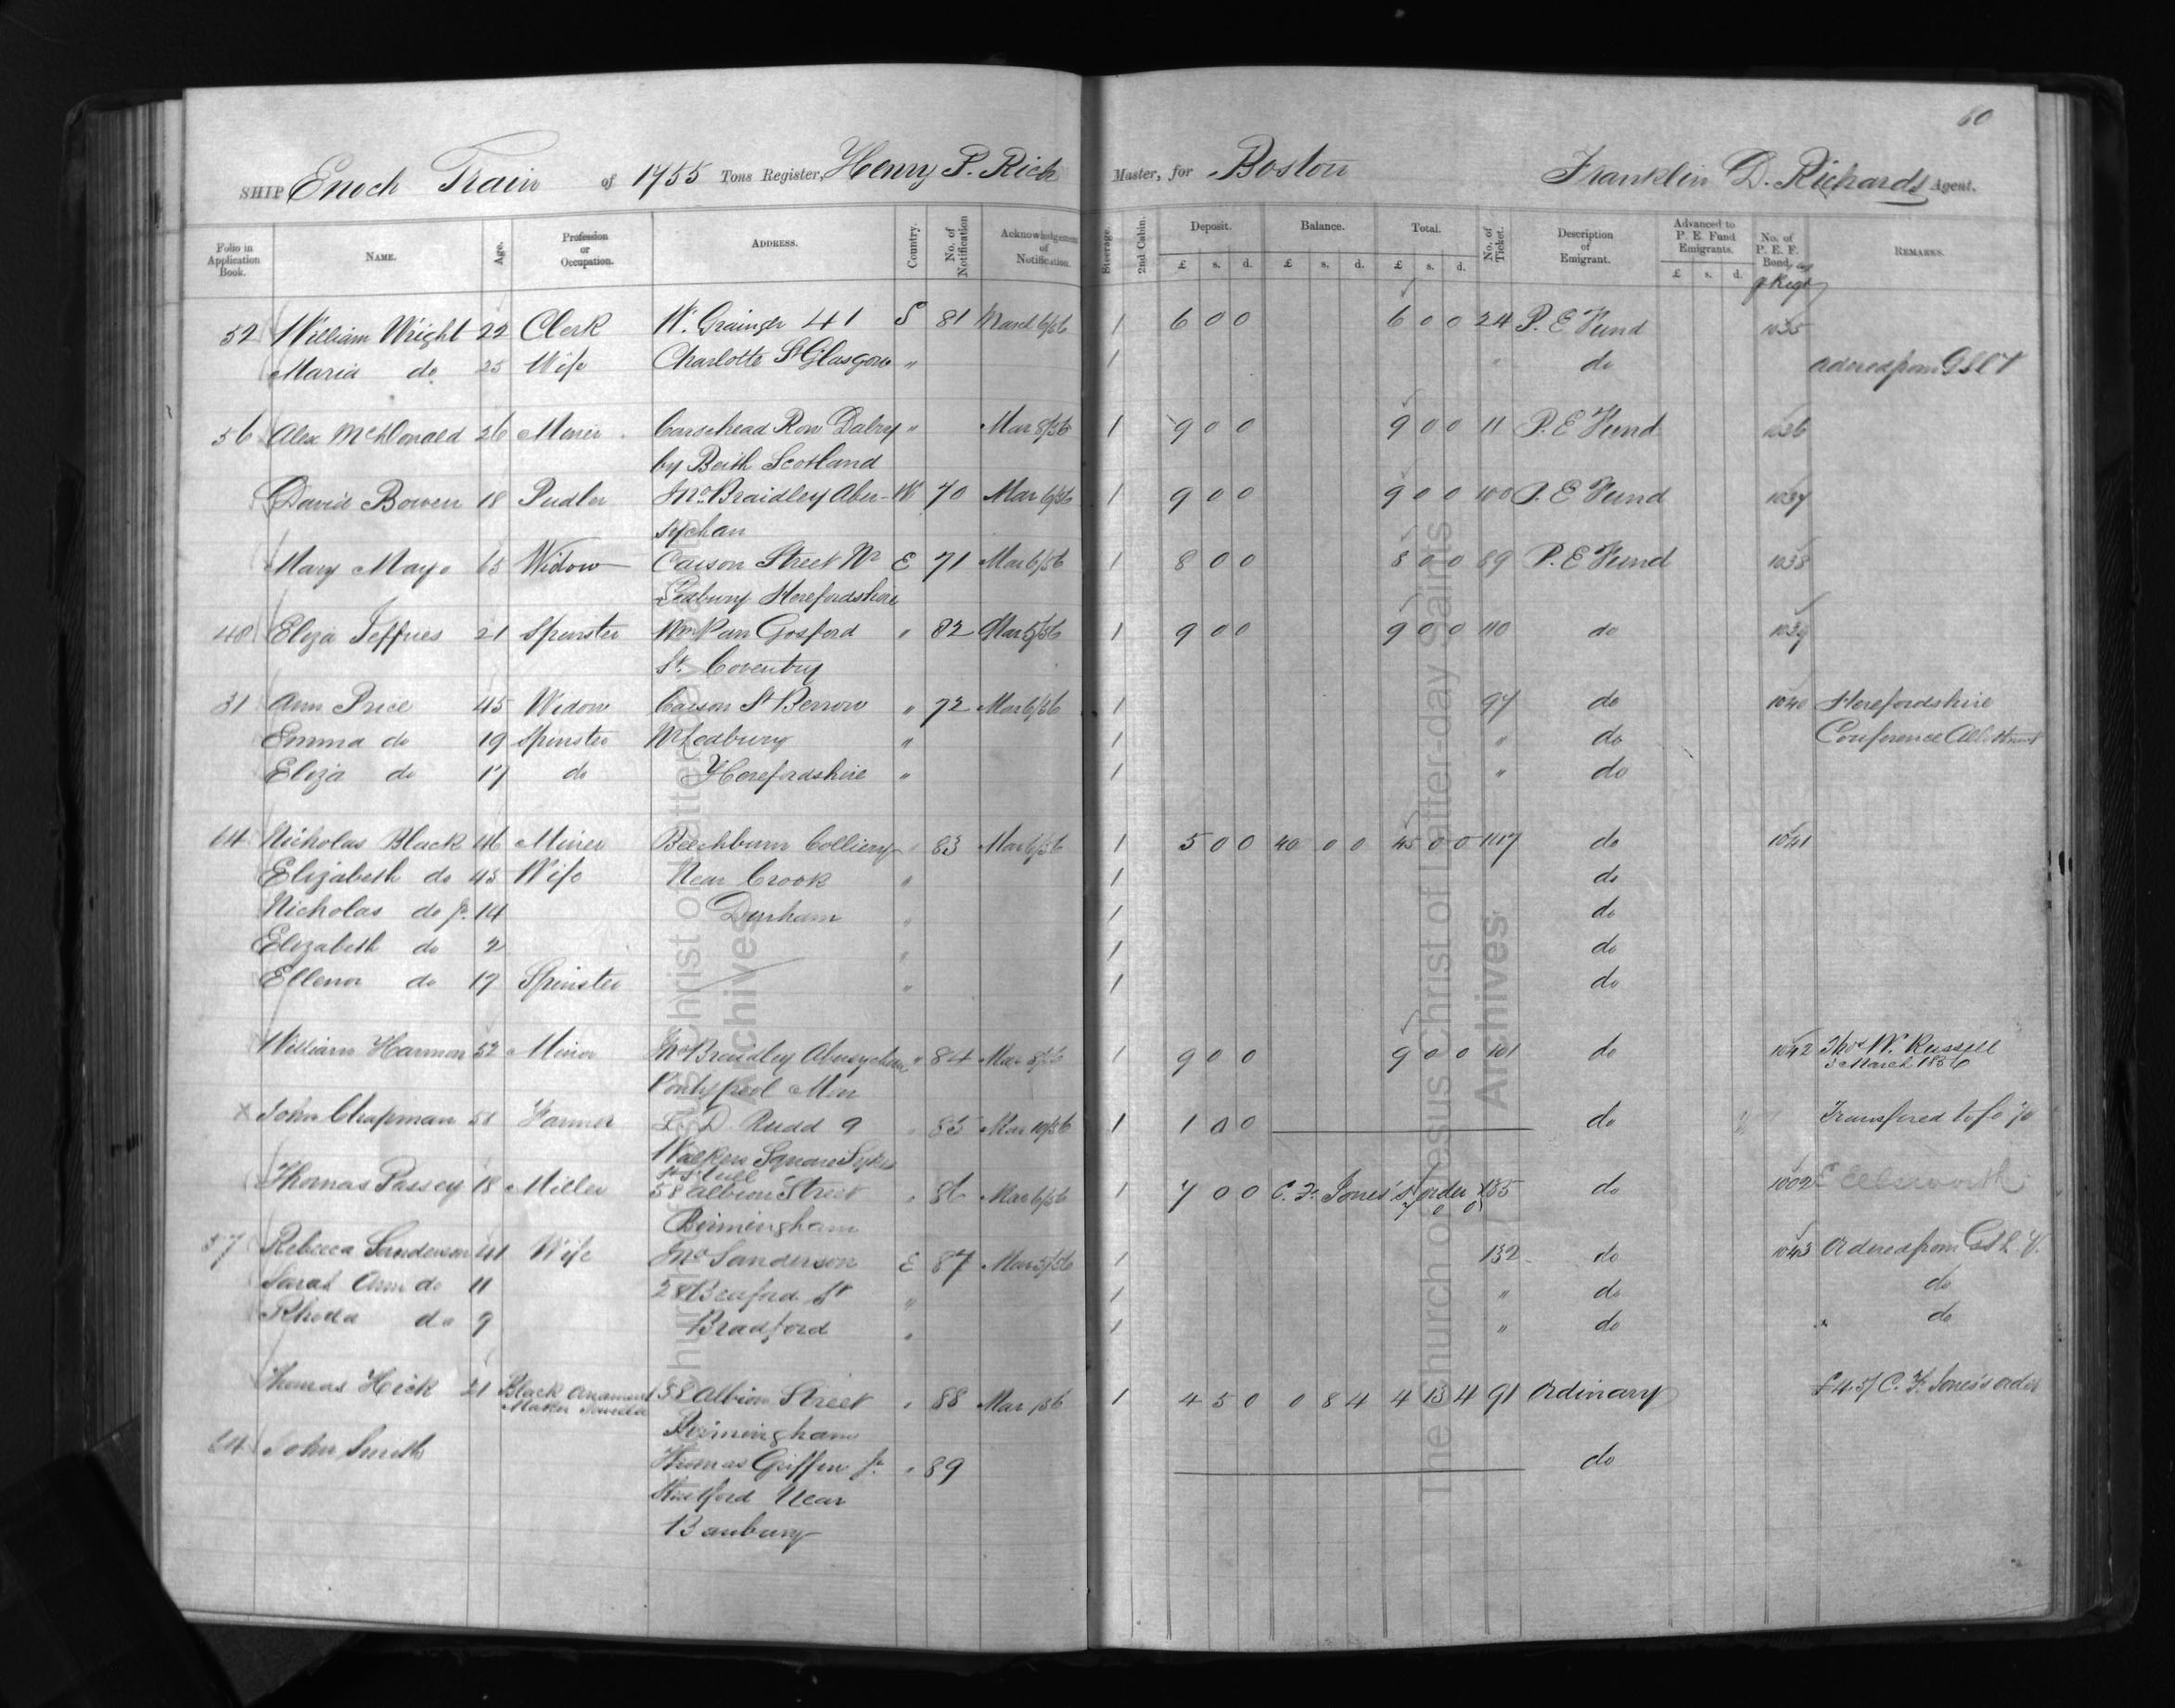 60
SHIP Enoch Train of 1755 Tons Register, Henry P. Rich Master, for Boston Franklin D. Richards Agent.
Folio in Application Book. NAME. Age. Profession or Occupation. ADDRESS. Country. No. of Notification Acknowledgement of Notification. Steerage. 2nd Cabin. Deposit. £ s. d. Balance. £ s. d. Total. £ s. d. No. of Ticket. Description of Emigrant. Advanced to P. E. Fund Emigrants. £ s. d. No. of P. E. F. Bond, REMARKS.
52 William Wright 22 Clerk W. Grainger 41 S 81 March 6/56 1 6 0 0 6 0 0 24 P. E Fund 1035
Maria do 25 Wife Charlotte St Glasgow " 1 " do
56 Alex McDonald 26 Miner Carsehead Row Dalry " Mar 8/56 1 9 0 0 9 0 0 11 P. E Fund 1036
by Beith Scotland
David Bowen 18 Pudler Jno. Braidley Aber- W 70 Mar 6/56 1 9 0 0 9 0 0 100 P. E Fund 1037
sychan
Mary Mayo 65 Widow Caison Street Nr E 71 Mar 6/56 1 8 0 0 8 0 0 89 P. E Fund 1038
Ledbury Herefordshire
48 Eliza Jeffries 21 Spinster Gosford " 82 Mar 5/56 1 9 0 0 9 0 0 110 do 1039
St. Coventry
31 Ann Price 45 Widow Caison St Berrow " 72 Mar 6/56 1 97 do 1040 Herefordshire
Emma do 19 Spinster Nr Ledbury " 1 " do Conference
Eliza do 17 do Herefordshire " 1 " do
64 Nicholas Black 46 Miner Beechburn Colliery " 83 Mar 6/56 1 5 0 0 40 0 0 45 0 0 do 1041
Elizabeth do 43 Wife Near Crook " 1 do
Nicholas do Jr. 14 Durham " 1 do
Elizabeth do 2 " 1 do
Ellenor do 17 Spinster " 1 do
William Harmon 52 Miner Jno Braidley Abersychan " 84 Mar 8/56 1 9 0 0 9 0 0 101 do 1042 Thos W. Russell
Pontypool Mon 3 March 1856
x John Chapman 58 Farmer L. D. Rudd 9 " 85 Mar 10/56 1 1 0 0 do Transfered
Walkers Square Sykes
St Hull
Thomas Passey 18 Miller 58 Albion Street " 86 Mar 6/56 1 7 0 0 C. F. Jones's order 135 do 1002 E Ellsworth
Birmingham 7 0 0
57 Rebecca Sanderson 41 Wife Jno Sanderson E 87 Mar 5/56 1 132 do 1043 Ordered from G S L V.
Sarah Ann do 11 28 Bedford St " 1 " do do
Rhoda do 9 Bradford " 1 " do do
Thomas Hick 21 Black Ornament 58 Albion Street " 88 Mar /56 1 4 5 0 0 8 4 4 13 4 91 Ordinary £4.5/ C. F. Jones's order
Maker Birmingham
64 John Smith Thomas Griffin Jr. " 89 do
Near
Banbury
The Church of Jesus Christ of Latter-day Saints
Archives